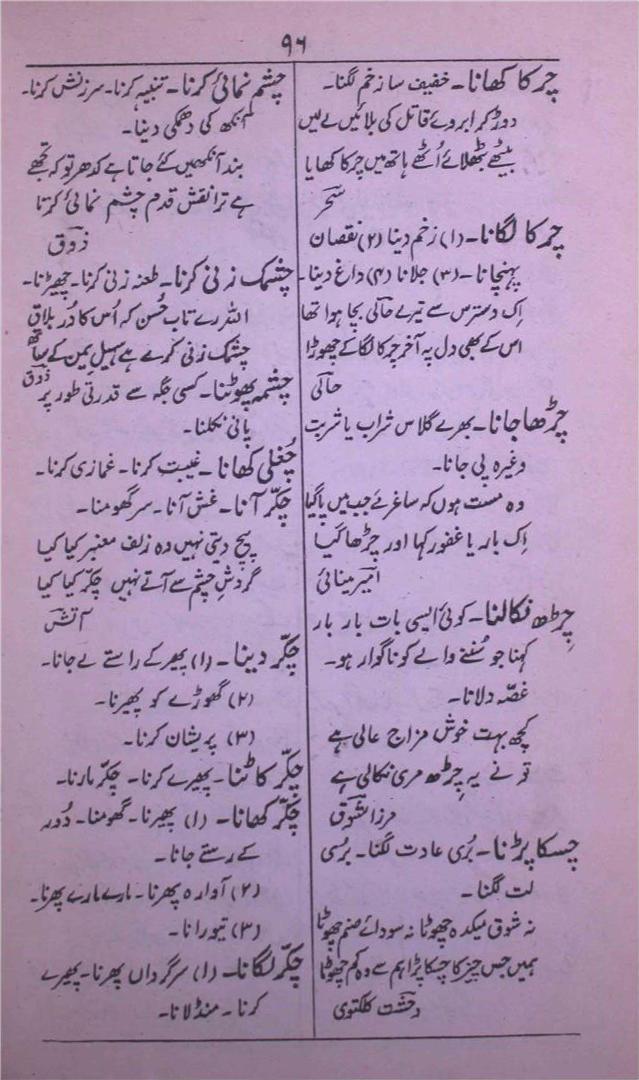 ۹۶
چرکا کھانا۔ خفیف سا زخم لگنا۔
دوڑ کر ابروئے قاتل کی بلائیں لے لیں
بیٹھے بٹھلائے اُٹھے ہاتھ میں چرکا کھایا
سحر
چرکا لگانا۔ (۱) زخم دینا (۲) نقصان
پہنچانا۔ (۳) جلانا (۴) داغ دینا۔
اِک دسترس سے تیرے حالی بچا ہوا تھا
اس کے بھی دل پہ آخر چرکا لگا کے چھوڑا
حالی
چڑھا جانا۔ بھرے گلاس شراب یا شربت
وغیرہ پی جانا۔
وہ مست ہوں کہ ساغرِ مے جب میں پا گیا
اِک بار یا غفور کہا اور چڑھا گیا
امیر مینائی
چِڑھ نکالنا۔ کوئی ایسی بات بار بار
کہنا جو سُننے والے کو ناگوار ہو۔
غصّہ دلانا۔
کچھ بہت خوش مزاج عالی ہے
تو نے یہ چِڑھ مری نکالی ہے
مرزا شوق
چسکا پڑنا۔ بُری عادت لگنا۔ بُرسی
لت لگنا۔
نہ شوق میکدہ چھوٹا نہ سودائے صنم چھوٹا
ہمیں جس چیز کا چسکا پڑا ہم سے وہ کم چھوٹا
وحشت کلکتوی
چشم نمائی کرنا۔ تنبیہ کرنا۔ سرزنش کرنا۔
آنکھ کی دھمکی دینا۔
بند آنکھیں کئے جاتا ہے کدھر تو کہ تجھے
ہے ترا نقش قدم چشم نمائی کرتا
ذوق
چشمک زنی کرنا۔ طعنہ زنی کرنا۔ چھیڑنا۔
اللہ رے تاب حُسن کہ اُس کا دُر بلاق
چشمک زنی کرے ہے سہیل یمن کے ساتھ
ذوق
چشمہ پھوٹنا۔ کسی جگہ سے قدرتی طور پر
پانی نکلنا۔
چُغلی کھانا۔ غیبت کرنا۔ غمازی کرنا۔
چکّر آنا۔ غش آنا۔ سر گھومنا۔
پیچ دیتی نہیں وہ زلف معنبر کیا کیا
گردشِ چشم سے آتے نہیں چکّر کیا کیا
آتش
چکّر دینا۔ (۱) پھیر کے راستے لے جانا۔
(۲) گھوڑے کو پھیرنا۔
(۳) پریشان کرنا۔
چکّر کاٹنا۔ پھیرے کرنا۔ چکّر مارنا۔
چکّر کھانا۔ (۱) پھیرنا۔ گھومنا۔ دُور
کے رستے جانا۔
(۲) آوارہ پھرنا۔ مارے مارے پھرنا۔
(۳) تیورانا۔
چکّر لگانا۔ (۱) سرگرداں پھرنا۔ پھیرے
کرنا۔ منڈلانا۔